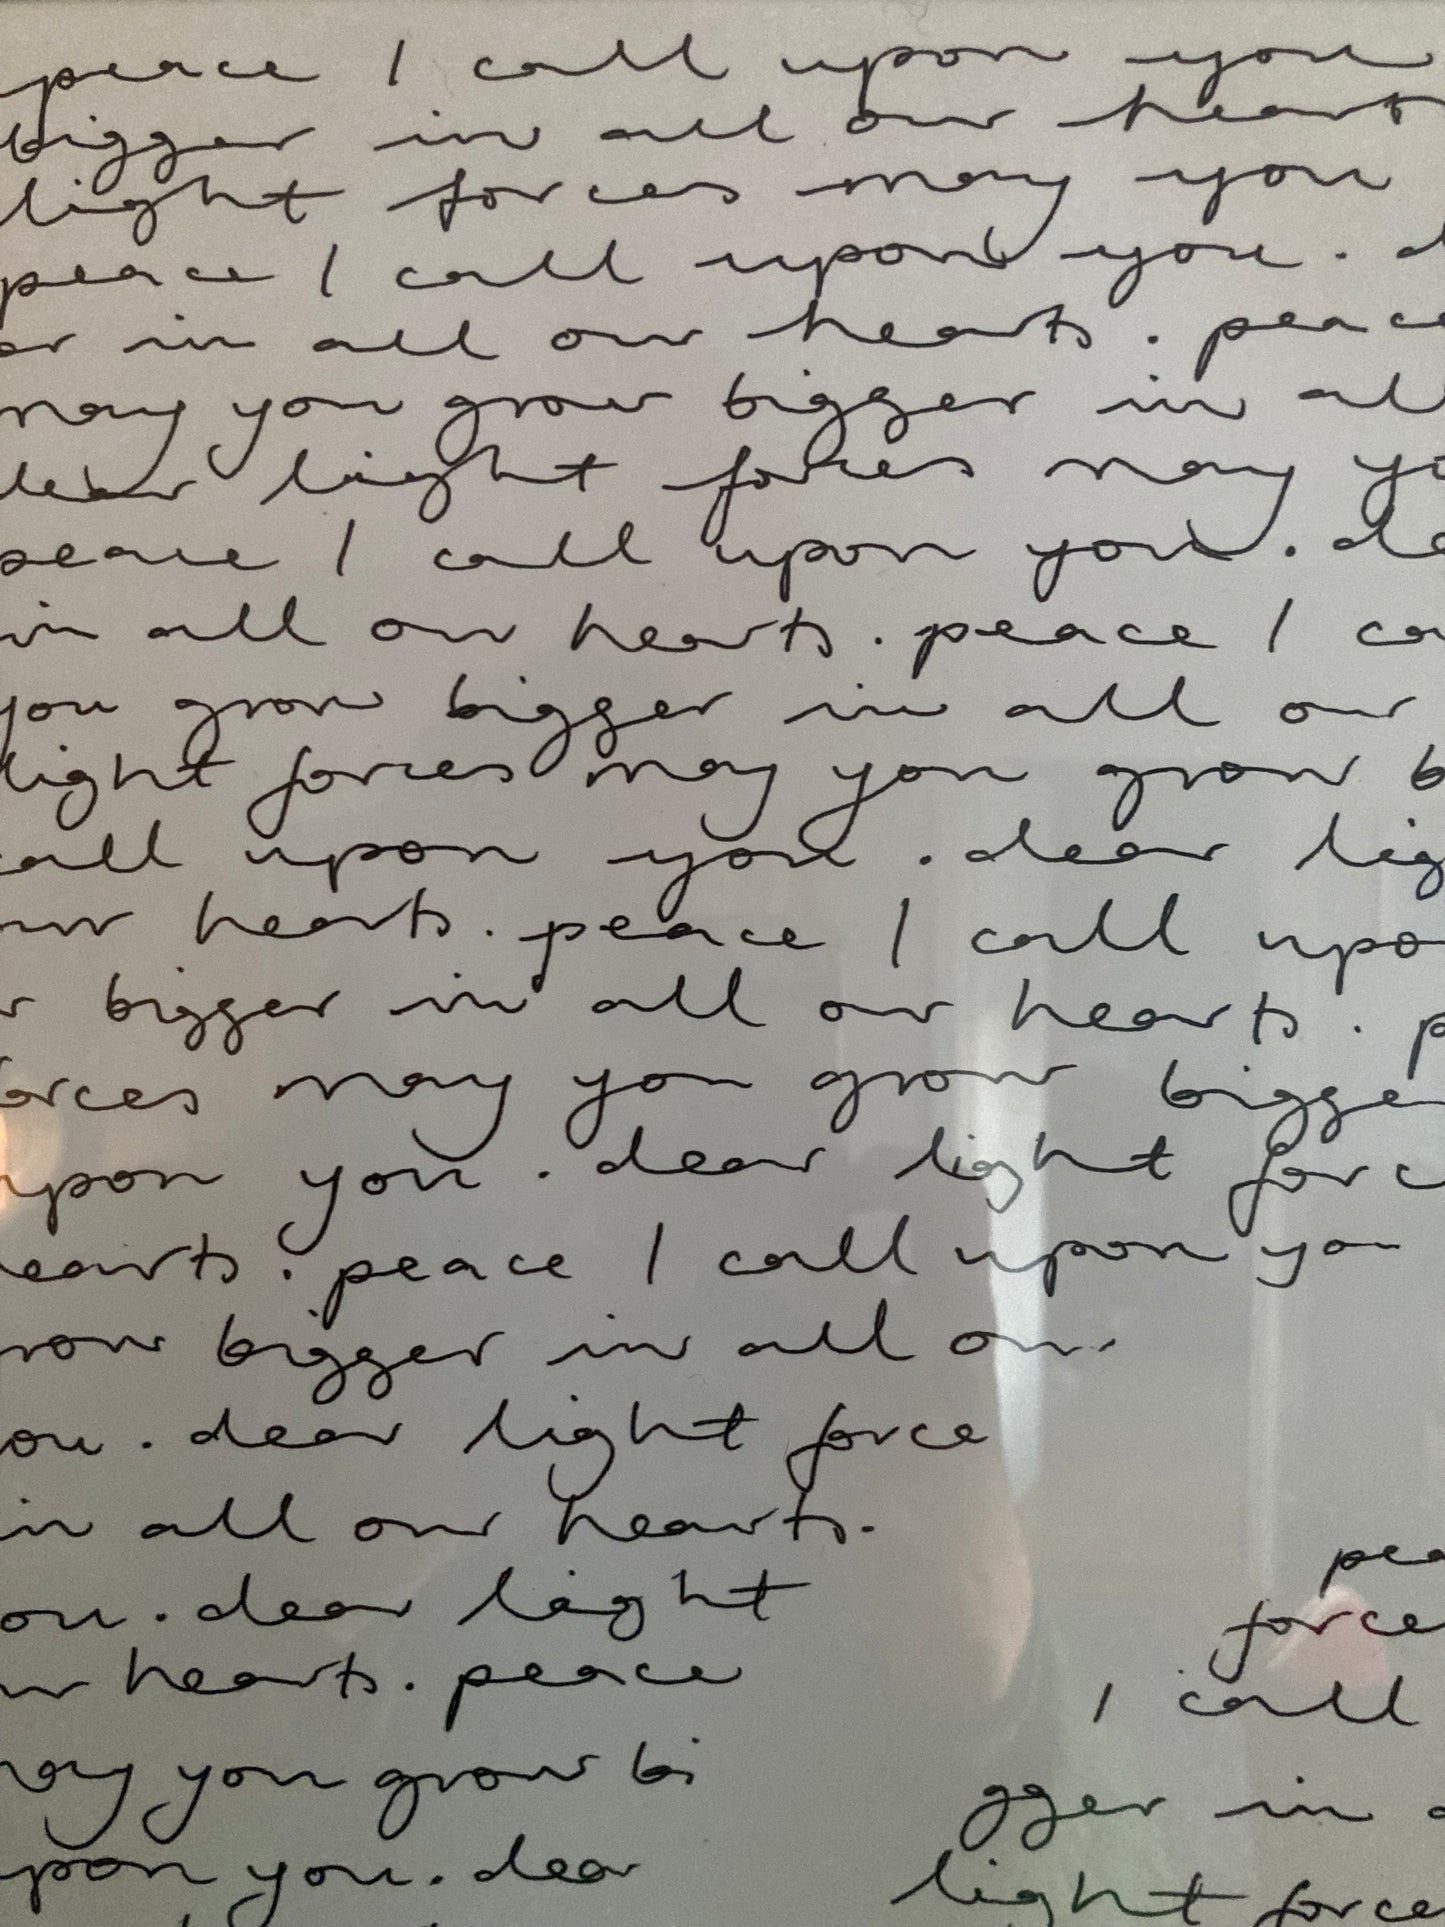 peace I call upon you
bigger in all our heart
light forces may you
peace I call upon you. d
er in all our hearts. peace
may you grow bigger in all
dear light forces may yo
peace I call upon you. de
in all our hearts. peace I ca
you grow bigger in all our
light forces may you grow b
call upon you. dear lig
our hearts. peace I call upo
r bigger in all our hearts. p
forces may you grow bigge
upon you. dear light forc
hearts. peace I call upon you
row bigger in all our
ou. dear light force
in all our hearts.
pea
ou. dear light
force
ur hearts. peace
I call
may you grow bi
gger in a
upon you. dear
light force